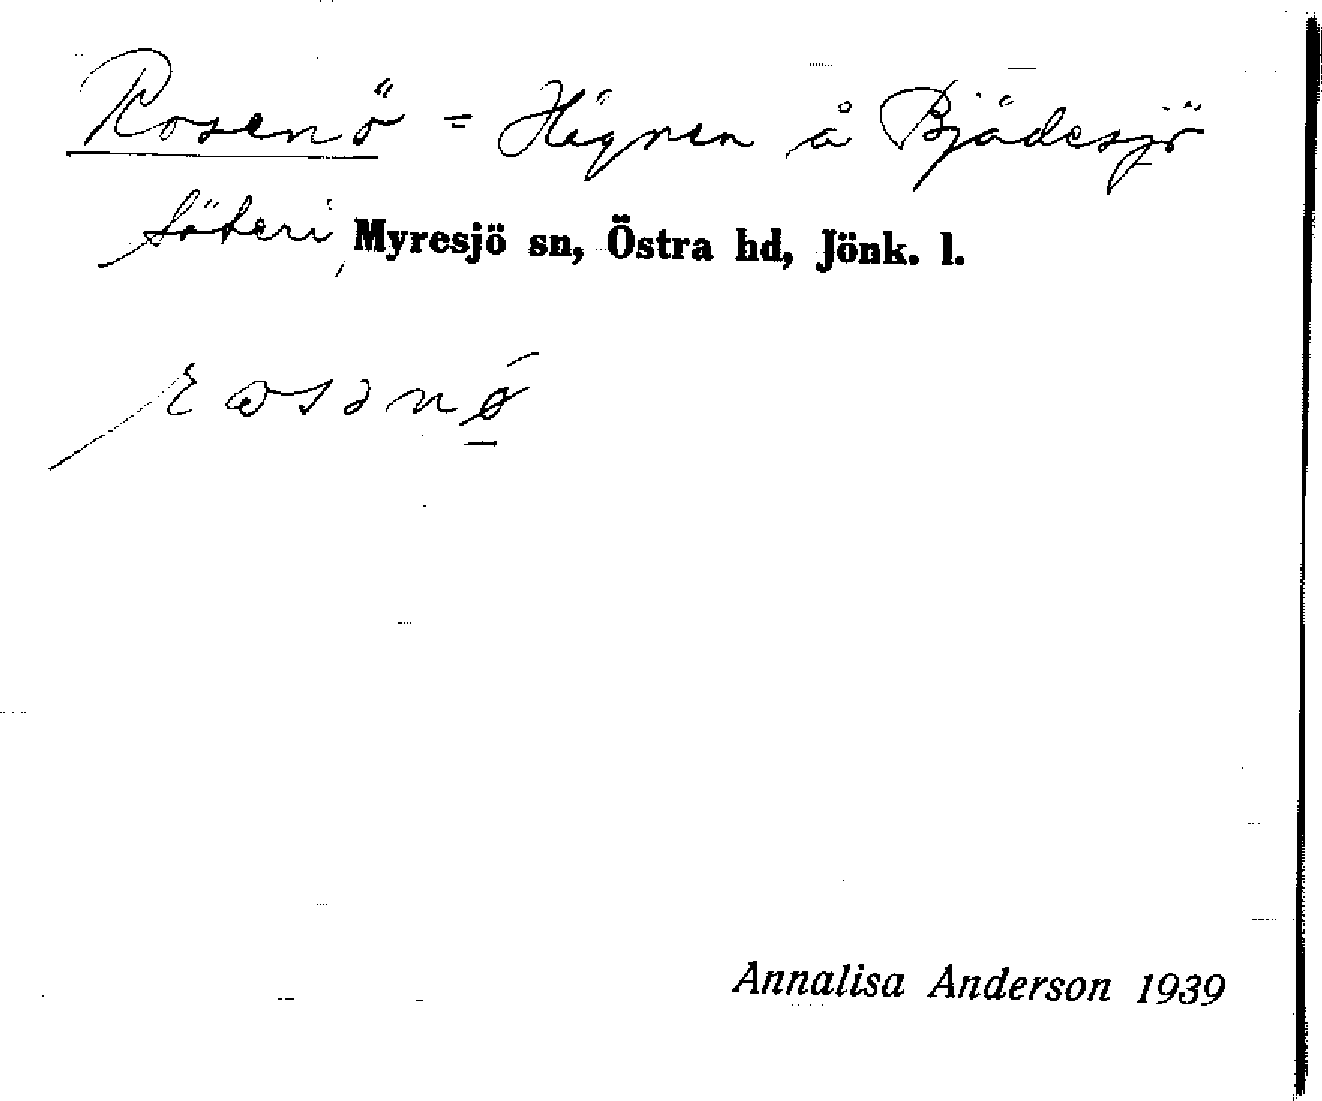 Rosenö = Hägnen å Bjädesjö
säteri, Myresjö sn, Östra hd, Jönk. l.
Annalisa Anderson 1939